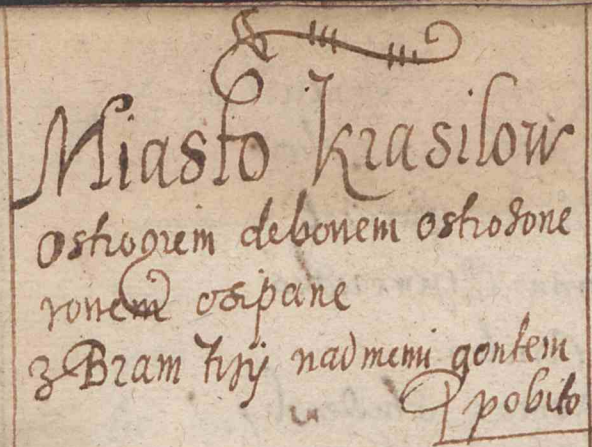 Miasto Krasilow
Ostrogiem debowem ostrożone
rowem osipane
z Bram trzÿ nad niemi gontem
pobito